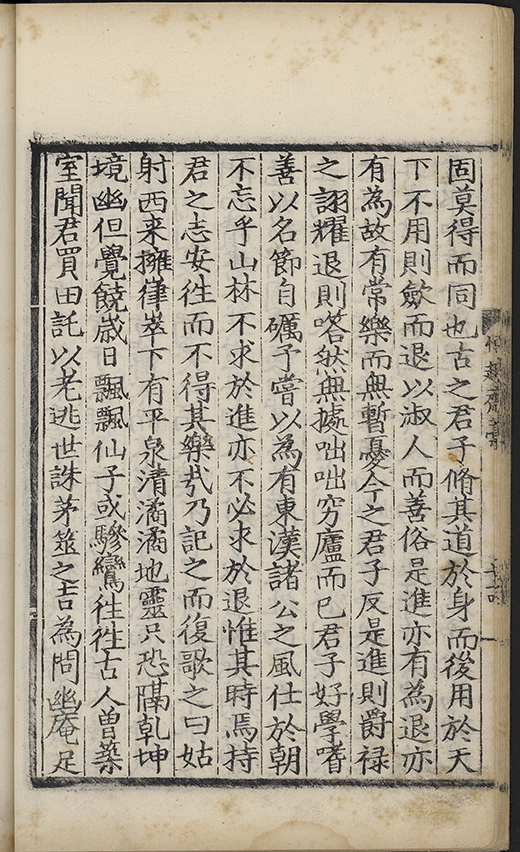 固莫得而同也古之君子脩其道於身而後用於天
下不用則歛而退以淑人而善俗是進亦有為退亦
有為故有常樂而無暫憂今之君子反是進則爵禄
之詡耀退則嗒然無據咄咄穷廬而已君子好學嗜
善以名節自礪予嘗以為有東漢諸公之風仕於朝
不忘乎山林不求於進亦不必求於退惟其時焉持
君之志安往而不得其樂㢤乃記之而復歌之曰姑
射西来擁嵂崒下有平泉清潏潏地靈只恐隔乾坤
境幽但覺饒歳日飄飄仙子或驂鸞往往古人曽築
室聞君買田託以老逃世誅茅筮之吉為問幽庵足